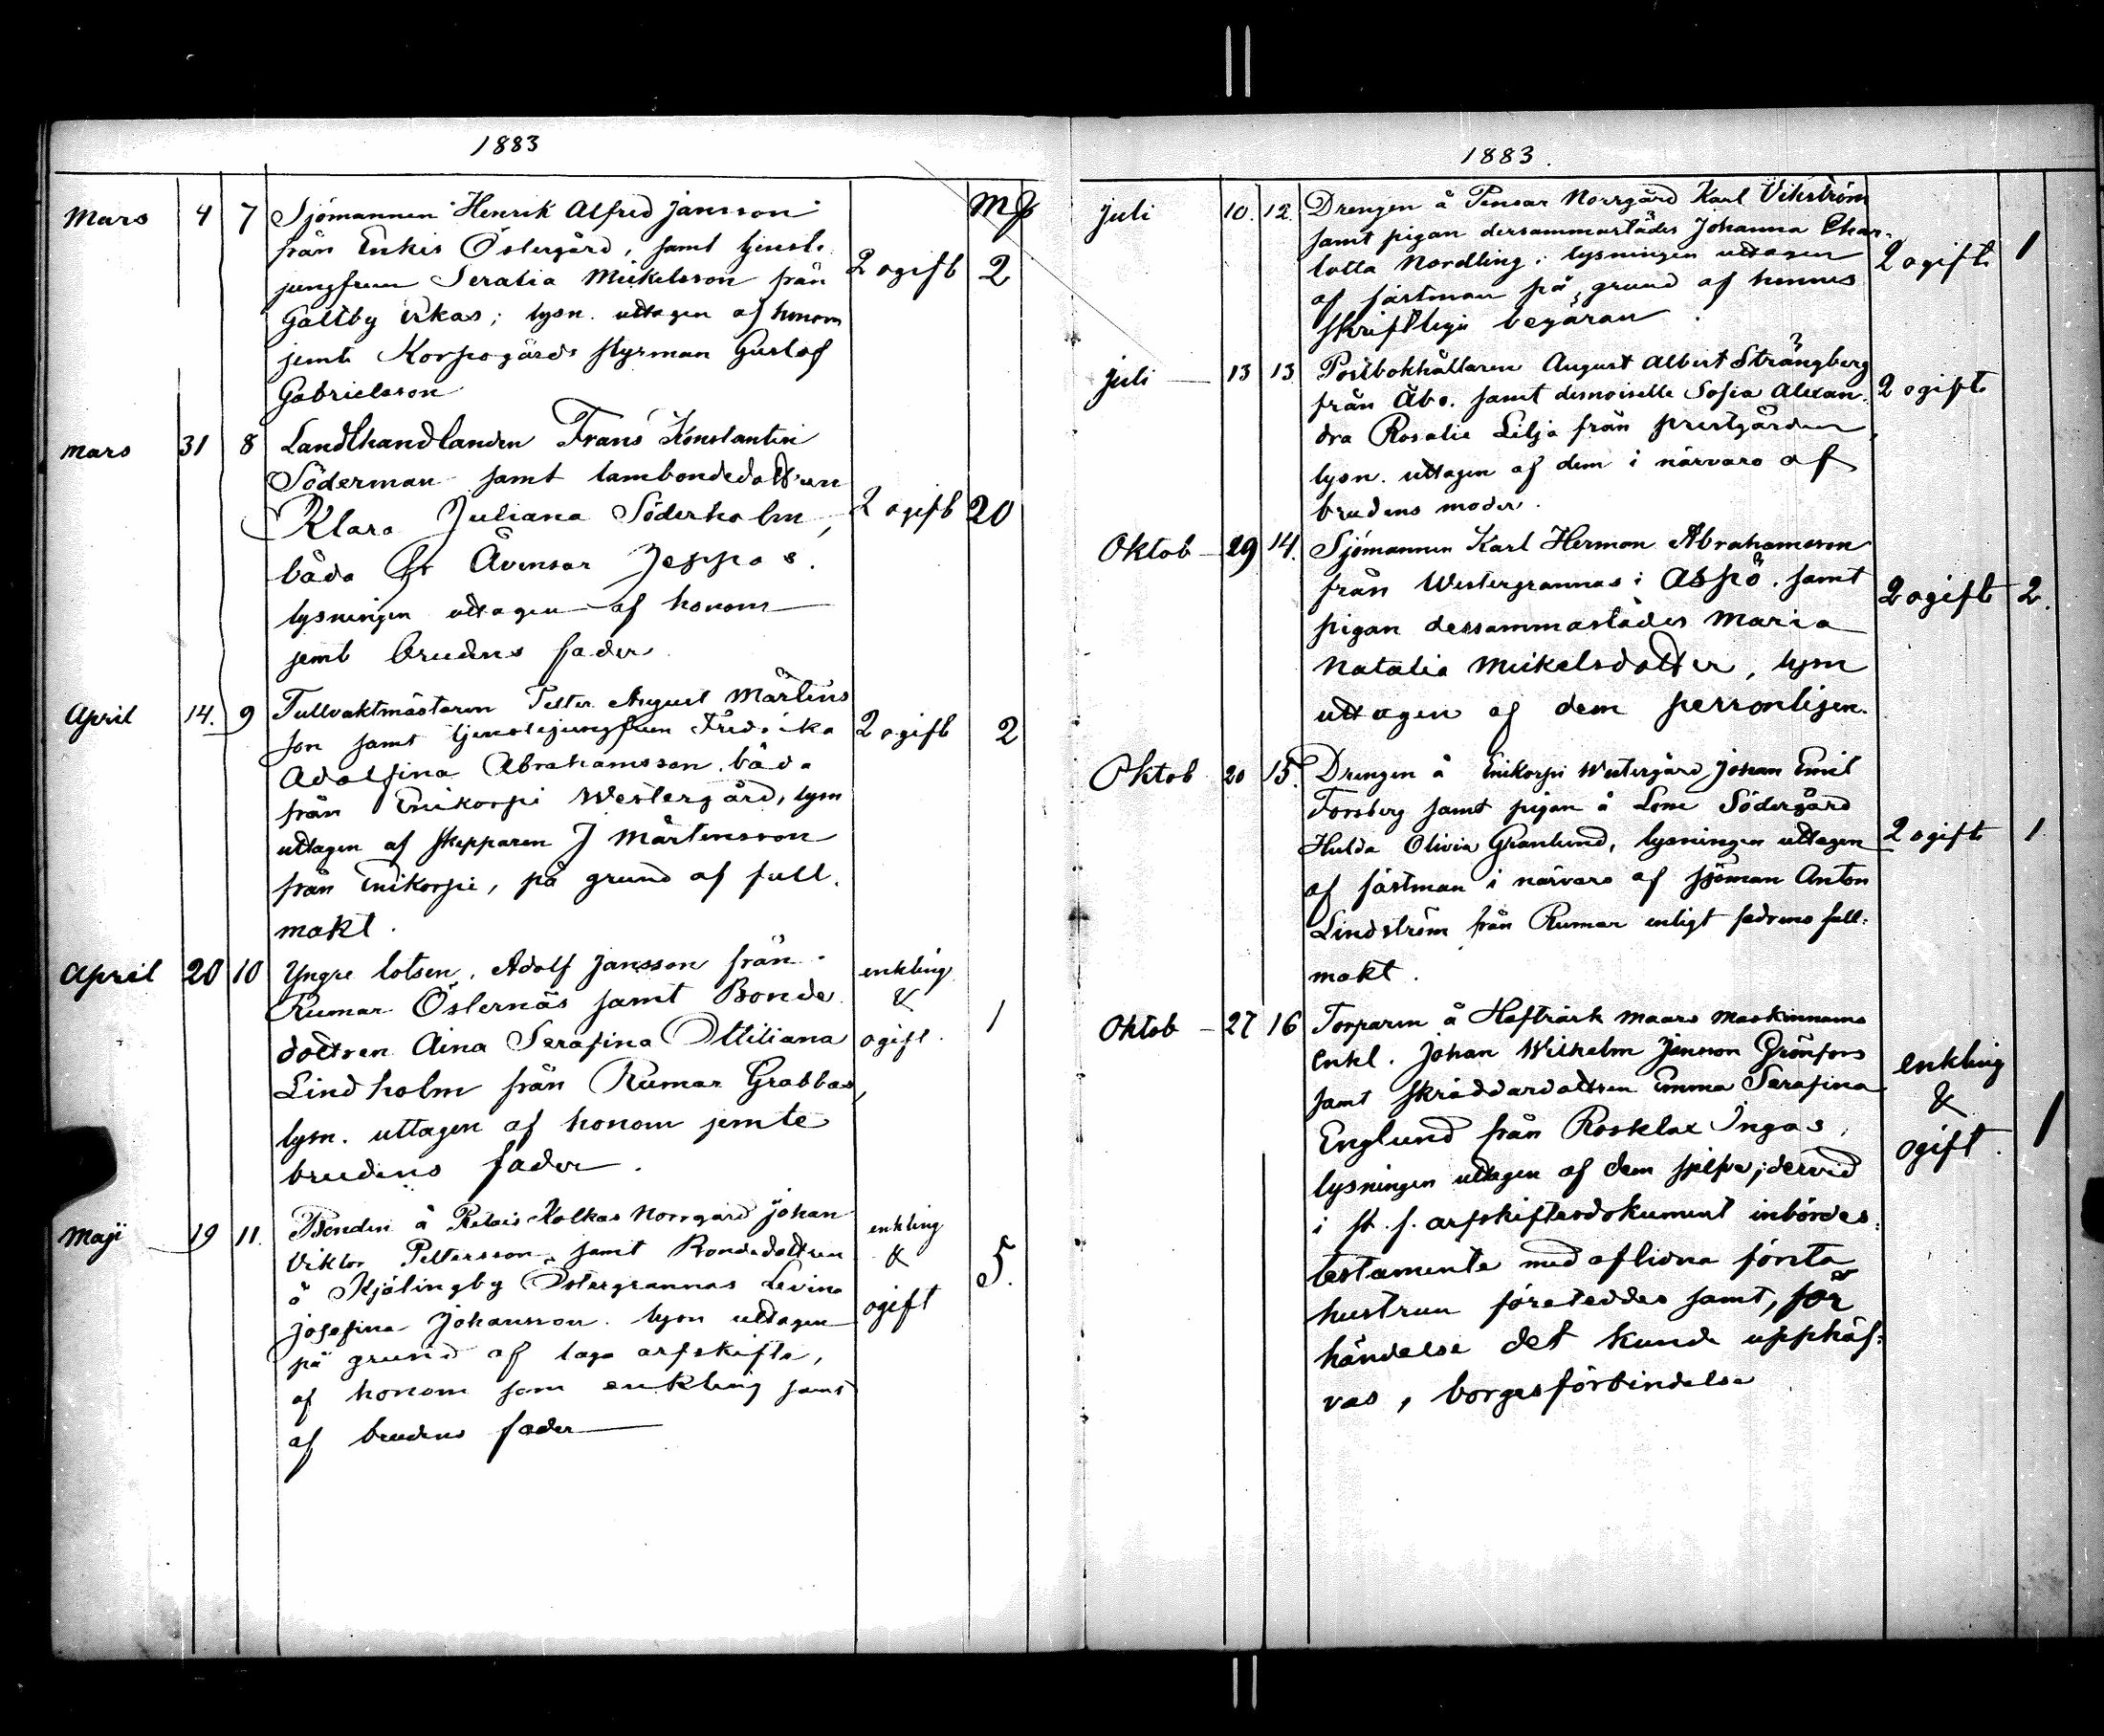 1883
M p
Mars 4 7 Sjömannen Henrik Alfred Jansson
från Enkis Östergård, samt tjenste
jungfrun Serafia Mickelsson från 2 ogift 2
Galtby Erkas; lysn. uttagen af honom
jemte Korpogårds styrman Gustaf
Gabrielsson
Mars 31 8 Landthandlanden Frans Konstantin
Söderman samt lambondedottren
Klara Juliana Söderholm, 2 ogift 20
båda fr Åvensor Jeppas.
lysningen uttagen af honom
jemt brudens fader
April 14. 9 Tullvaktmästaren Petter August Mårtens
son samt tjenstejungfrun Fredrika 2 ogift 2
Adolfina Abrahamsson. båda
från Enikorpi Westergård, lysn
uttagen af skepparen J Mårtensson
från Enikorpi, på grund af full.
makt.
April 20 10 Yngre lotsen. Adolf Jansson från enkling
Rumar Östernäs samt Bonde &
dottren Aina Serafina Ottiliana ogift. 1
Lindholm från Rumar Grabbas,
lysn. uttagen af honom jemte
brudens fader.
Maji 19 11. Bonden å Retais Kolkas Norrgård Johan enkling
Viktor Pettersson, samt Bondedottren &
å Kjälingby Östergrannas Levina ogift 5.
Josefina Johansson. lysn uttagen
på grund af laga arfskifte,
af honom som enkling samt
af brudens fader
1883.
Juli 10. 12. Drengen å Pensar Norrgård Karl Vikström
samt pigan dersammastädes Johanna Char-
lotta Nordling; lysningen uttagen 2 ogift 1
af fästman på grund af hennes
skriftliga begäran.
Juli 13 13 Postbokhållaren August Albert Strängberg
från Åbo. samt demoiselle Sofia Alexan- 2 ogift
dra Rosalie Lilja från prestgården,
lysn. uttagen af dem i närvaro af
brudens moder.
Oktob 29 14. Sjömannen Karl Herman Abrahamsson
från Westergrannas i Aspö. samt 2 ogift 2.
pigan dessammastädes Maria
Natalia Mickelsdotter, lysn
uttagen af dem personligen.
Oktob 20 15. Drengen å Enikorpi Westergård Johan Emil
Forsberg samt pigan å Lom Södergård
Hulda Olivia Granlund, lysningen uttagen 2 ogift 1
af fästman i närvaro af sjöman Anton
Lindström från Rumar enligt fadrens full-
makt.
Oktob 27 16 Torparen å Hafträsk Maars Maskinnamo
Enkl. Johan Wilhelm Jansson Grönfors enkling
samt skräddardottren Emma Serafina &
Englund från Rosklax Ingas, ogift. 1
lysningen uttagen af dem sjelfva; dervid
i st. f. arfskiftesdokument inbördes-
testamente med aflidna första
hustrun företeddes samt, för
händelse det kunde upphäf-
vas, borgesförbindelse